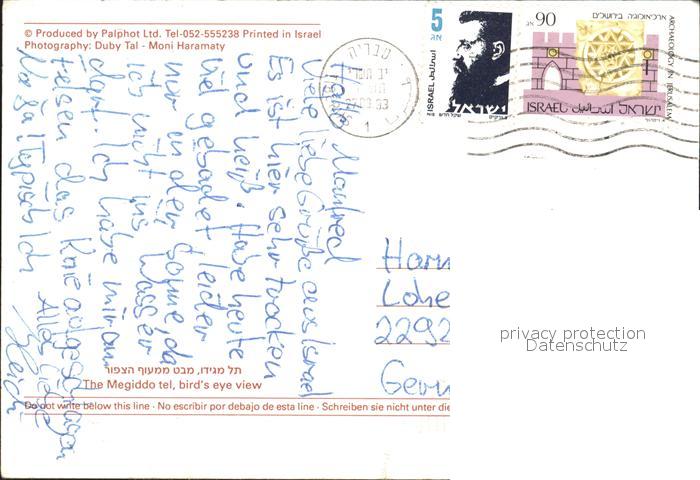 © Produced by Palphot Ltd. Tel-052-555238 Printed in Israel
Photography: Duby Tal - Moni Haramaty
5
אג
ISRAEL
ישראל
90
אג
ארכיאולוגיה בירושלים
ARCHAEOLOGY IN JERUSALEM
ISRAEL اسرائيل ישראל
טבריה
1
Hallo Manfred
Viele liebe Grüße aus Israel
Es ist hier sehr trocken
und heiß. Habe heute
viel gebadet leider
nur in der Sonne, da
ich nicht ins Wasser
darf. Ich habe mir am
Felsen das Knie aufgeschlagen
Na ja! Typisch Ich
Alles Liebe
Lohe
2292
privacy protection
Datenschutz
תל מגידו, מבט ממעוף הצפור
The Megiddo tel, bird's eye view
Do not write below this line · No escribir por debajo de esta line · Schreiben sie nicht unter die